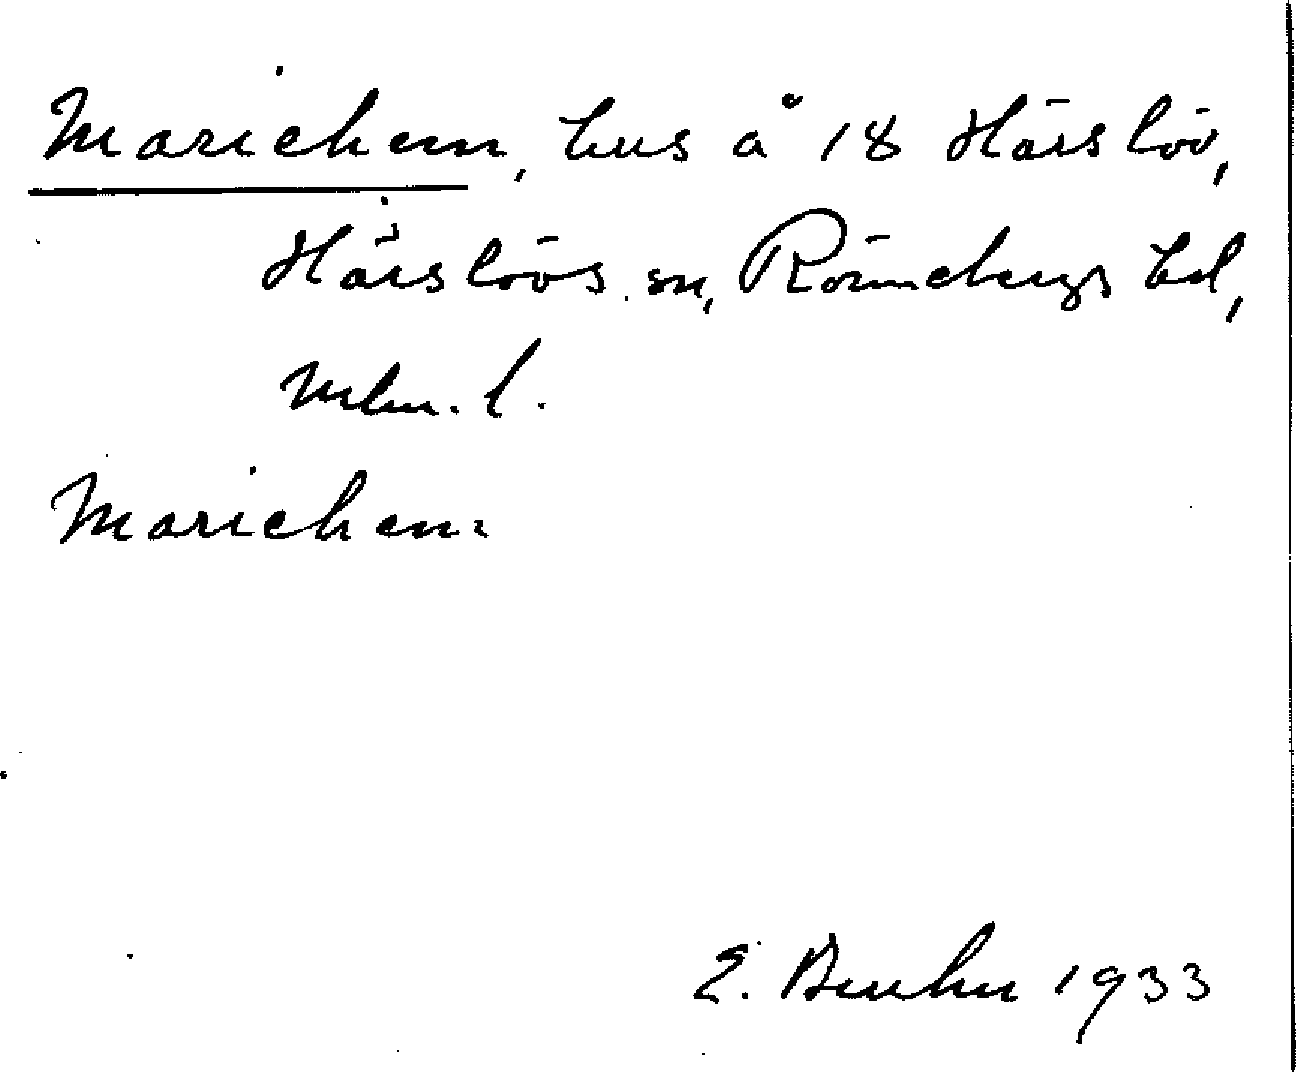 Mariehem, hus å 18 Härslöv,
Härslövs sn, Rönnebergs hd,
Mlm. l.
Mariehem:
E. 1933